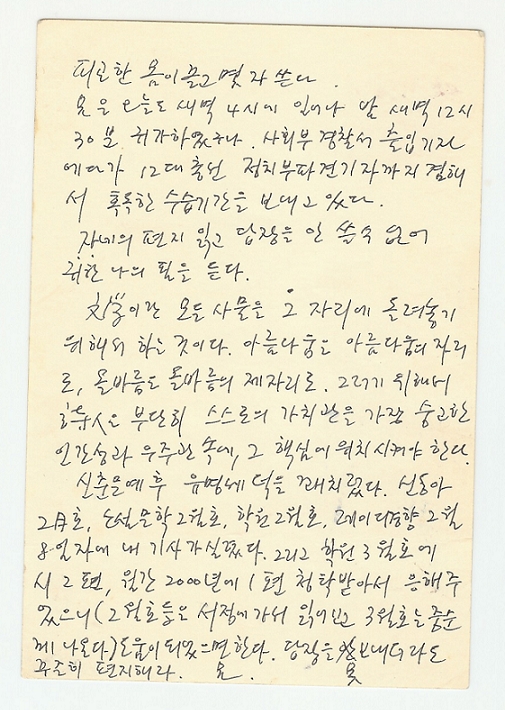 피로한 몸이 끌고 몇 자 쓴다.
오늘도 새벽 4시에 일어나 밤 새벽 12시
30분 귀가하였구나. 사회부 경찰서 출입기자
에다가 12대 총선 정치부파견기자까지 겸해
서 혹독한 수습기간을 보내고 있다.
자네의 편지 읽고 답장을 안 쓸 수 없어
귀한 나의 펜을 든다.
이란 모든 사물을 그 자리에 돌려놓기
위해서 하는 것이다. 아름다움은 아름다움의 자리
로, 올바름은 올바름의 제자리로. 그러기 위해서
부단히 스스로의 가치관을 가장 숭고한
인간성과 우주관 속에, 그 핵심에 위치시켜야 한다.
신춘문예 후 유명세 덕을 꽤 치렀다. 신동아
2月호, 소설문학 2월호, 학원 2월호, 레이디경향 2월
8일자에 내 기사가 실렸다. 그리고 학원 3월호에
시 2편, 월간 2000년에 1편 청탁받아서 응해주
었으니 (2월호들은 서점에 가서 읽어보고 3월호는 중순
께 나온다) 도움이 되었으면 한다. 답장을 못 보내더라도
꾸준히 편지해라.